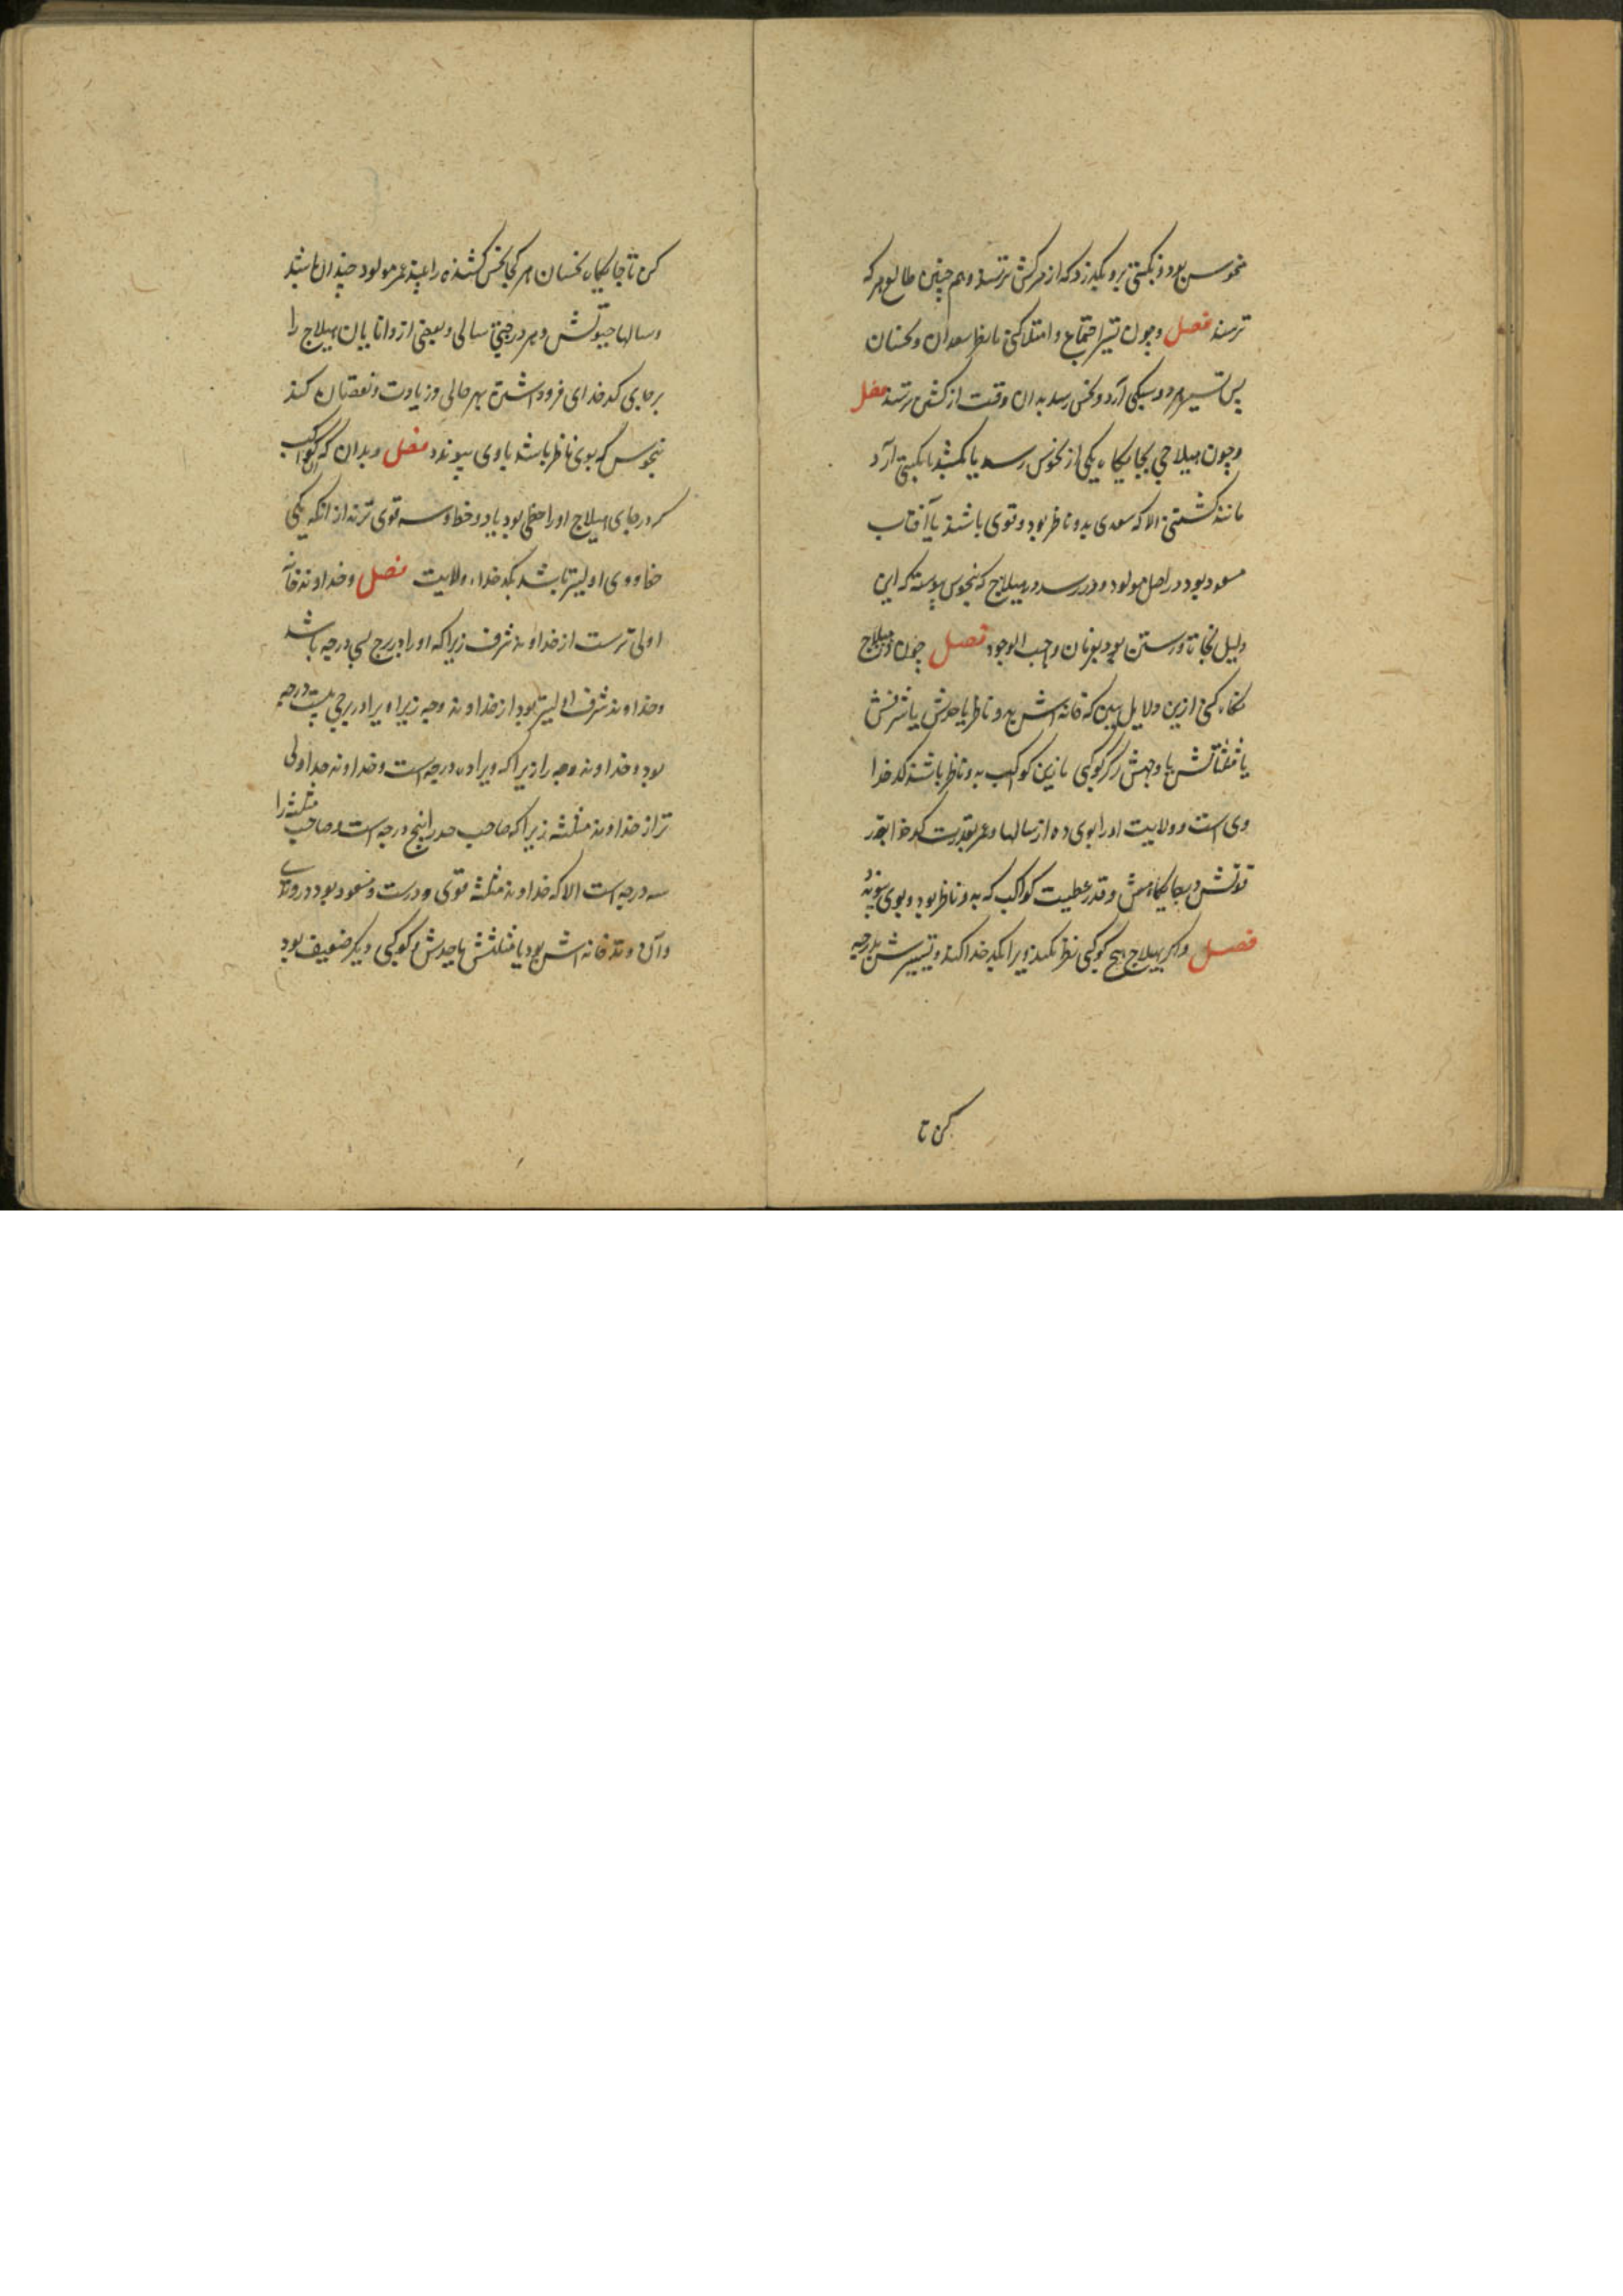 منحوس بود و نکبتی برو بگذرد که از مرکش ترسند و هم چنین طالع هرکه
ترسند فصل و چون تسییر اجتماع و امتلا کنی تا بنظر سعدان و نحسان
پس تسییر هر دو سبکی آرد و نحس رسد بدان وقت از کشتن ترسند فصل
و چون هیلاجی بجایکاه یکی از نحوس رسد یا بکشد یا نکبتی آرد
مانند کشتنی الا که سعدی بدو ناظر بود و قوی باشد یا آفتاب
مسعود بود در اصل مولود و در رسد و هیلاج که بنحوس پیوستکه این
دلیل نجات و رستن بود بفرمان واجب الوجود فصل چون در هیلاج
نکاه کنی ازین دلایل ببین که خانه اش بدو ناظر یا حدش یا شرفش
یا مثلثاتش یا وجهش هر کوکبی ازین کواکب بدو ناظر باشد کدخدا
وی است و ولایت او را بوی ده از سالها و عمر بقدرت کدخدا بقدر
قوتش و بجایکاهش و قدر عطیت کواکب که بدو ناظر بود و بوی پیوندد
فصل و اکر بهیلاج هیچ کوکبی نظر نکند ویرا بکدخدا کند و تسییرش بدرجه
کن تا
کن تا جایکاه نحسان هر کجا بنحس کشنده رسد عمر مولود چندان باشد
و سالها حیوتش و هر درجتی سالی و بعضی از دانایان هیلاج را
بر جای کدخدای فرود داشتن بهر حالی و زیادت و نقصان کند
بنحوس که بوی ناظر باشد یا وی پیوندد فصل و بدان که کواکب
که در جای هیلاج او را حظی بود یا دو حظ و سه قوی ترند از آنکه یکی
حظ و وی اولیتر باشد بکدخداء ولایت فصل و خداوند خانه
اولی ترست از خداوند شرف زیرا که او را در برج سی درجه باشد
و خداوند شرف اولیتر بود از خداوند وجه زیرا ویرا در برجی بیست درجه
بود و خداوند وجه را زیرا که ویرا ده درجه است و خداوند حد اولی
تر از خداوند مثلثه زیرا که صاحب حد را پنج درجه است و صاحب مثلثه را
سه درجه است الا که خداوند مثلثه قوی و درست و مسعود بود در وتدی
و آن وتد خانه اش بود یا مثلثش یا حدش و کوکبی دیکر ضعیف بود